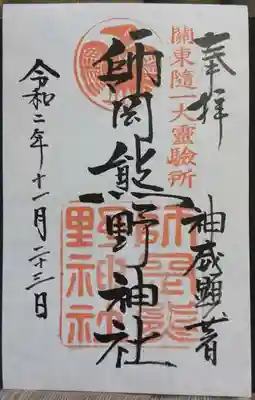 奉拝
神威顕著
關東隨一大靈驗所
師岡熊野神社
師岡熊
野神社
令和二年十一月二十三日